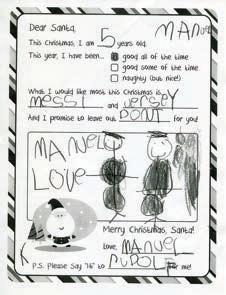 Dear Santa, MANUEL
This Christmas, I am 5 years old.
This year, I have been... good all of the time
good some of the time
naughty (but nice!)
What I would like most this Christmas is
MESSI and JERSEY
And I promise to leave out DONT for you!
MANUEL
LOVE
Merry Christmas, Santa!
Love, MANUEL
P.S. Please Say "Hi" to RUDOLF for me!